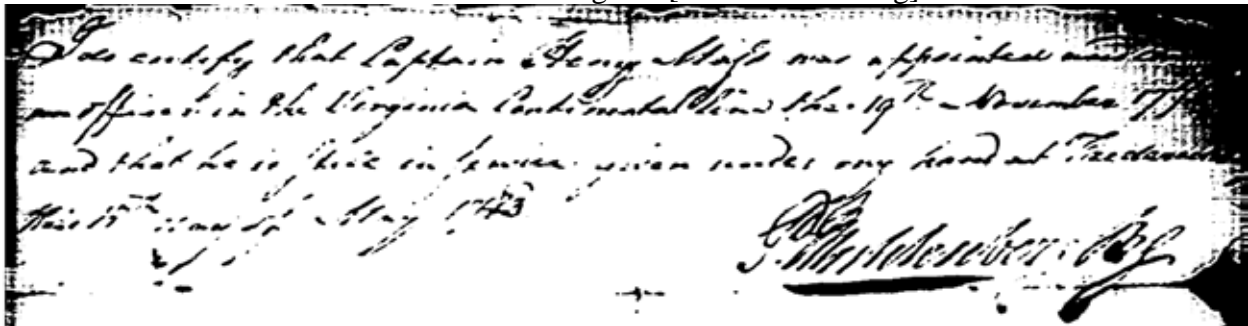 I do certify that Captain Henry Moss was appointed
an officer in the Virginia Continental line the 19th November 177
and that he is still in service given under my hand at Frederick
this 17th day of May 1783
P. Muhlenberg B G